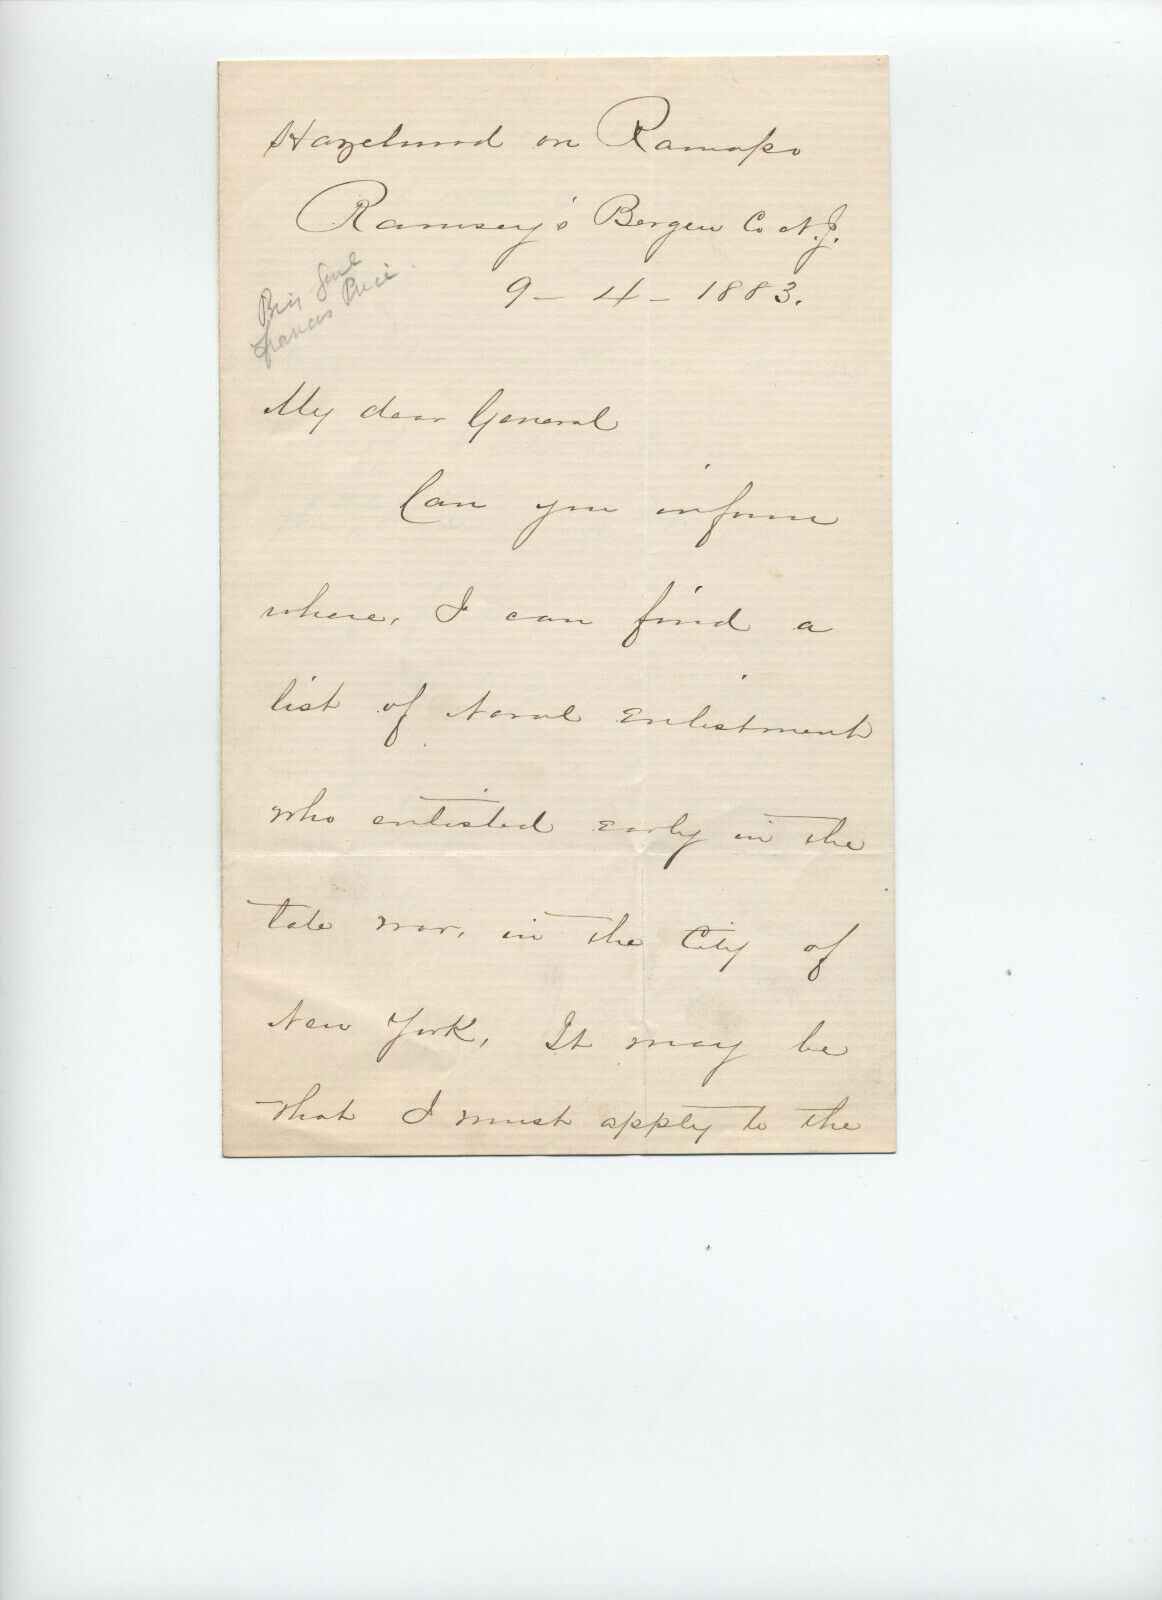 Hazelwood on Ramapo
Ramsey's Bergen Co N.J.
9 - 4 - 1883.
Brig Genl
Francis Price
My dear General
Can you inform
where, I can find a
list of Naval Enlistment
who enlisted early in the
late war, in the City of
New York, It may be
that I must apply to the